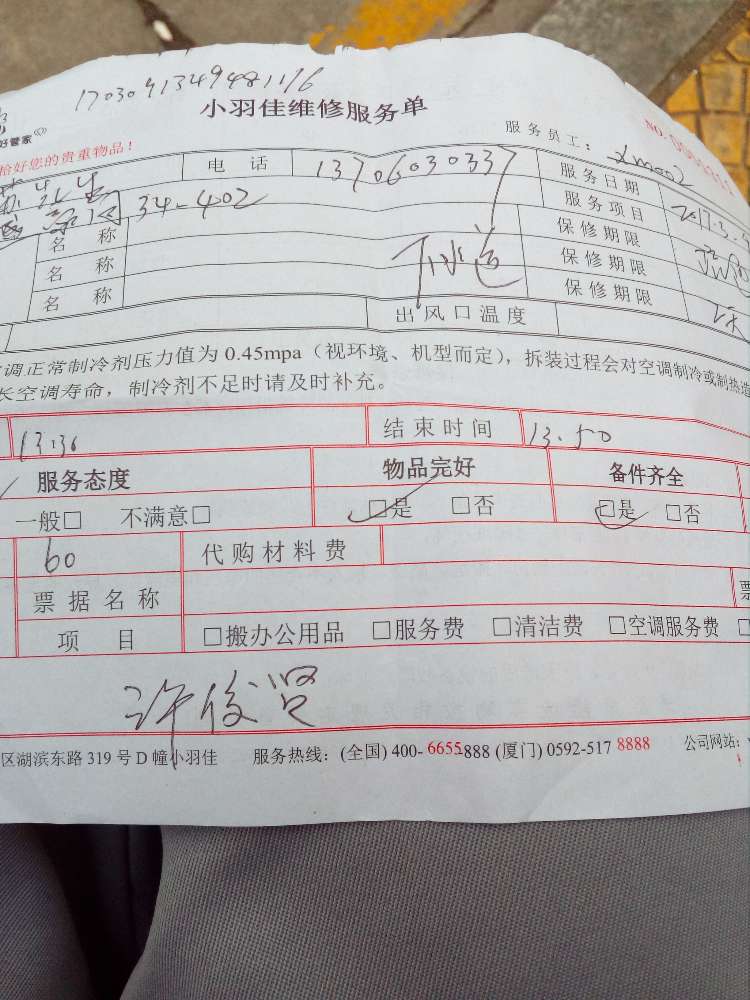 17030913494811/6
小羽佳维修服务单
好管家
恰好您的贵重物品！
服务员工： xm002
NO.
电 话 13706030337 服务日期 2017.3.
34-402 服务项目
名 称 下水道 保修期限
名 称 保修期限
名 称 保修期限
出风口温度
调正常制冷剂压力值为 0.45mpa（视环境、机型而定），拆装过程会对空调制冷或制热造
长空调寿命，制冷剂不足时请及时补充。
13:36 结束时间 13.50
服务态度 物品完好 备件齐全
一般□ 不满意□ □是 □否 □是 □否
60 代购材料费
票据名称 票
项 目 □搬办公用品 □服务费 □清洁费 □空调服务费 □
许俊贤
区湖滨东路 319 号 D 幢小羽佳 服务热线：(全国) 400- 6655-888 (厦门) 0592-517 8888 公司网站：